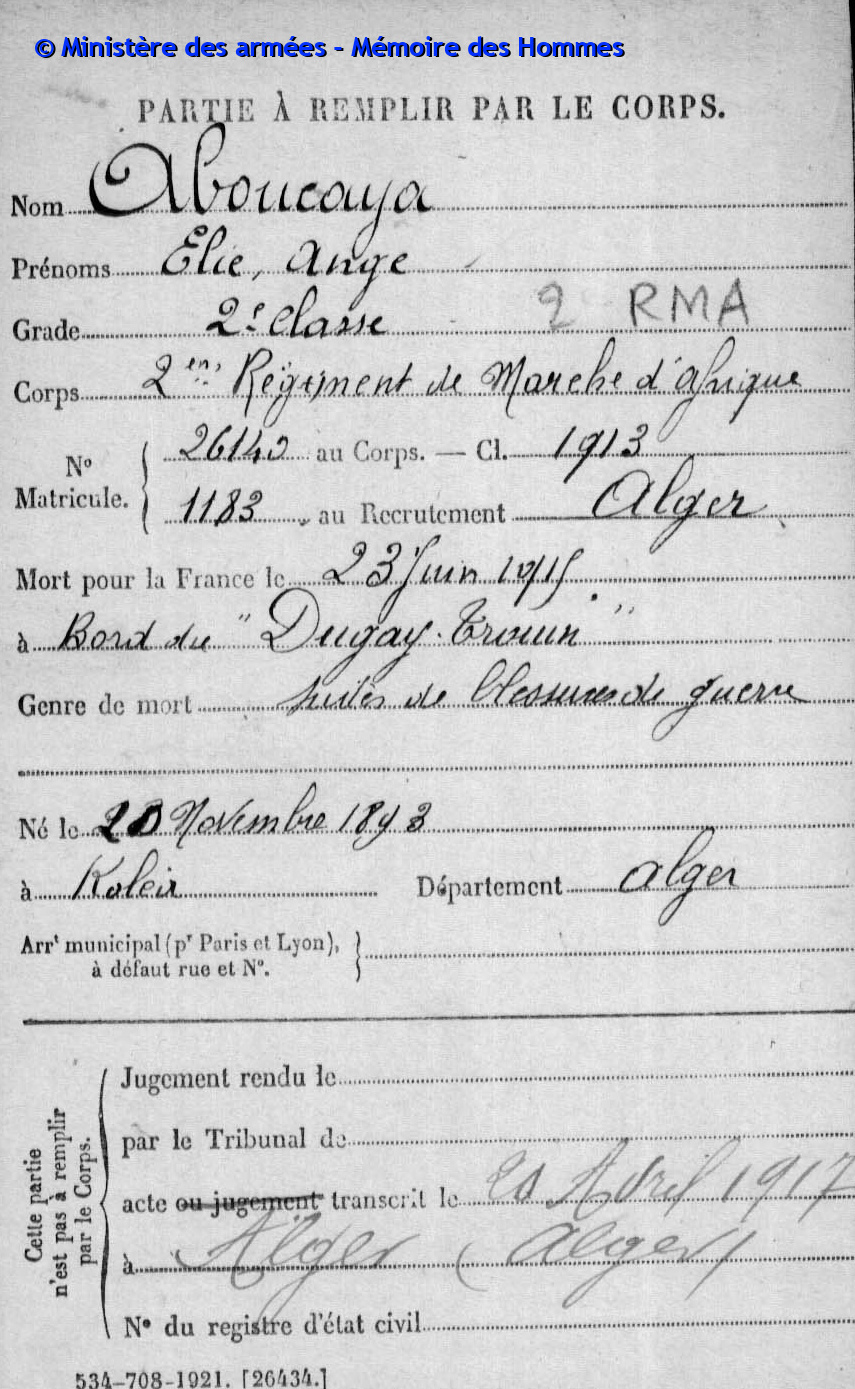 © Ministère des armées - Mémoire des Hommes
PARTIE À REMPLIR PAR LE CORPS.
Nom Aboucaya
Prénoms Elie, Ange
Grade 2e Classe 2 RMA
Corps 2em Régiment de Marche d'Afrique
No Matricule. { 26140 au Corps. — Cl. 1913
1183 au Recrutement Alger
Mort pour la France le 23 Juin 1915
à Bord du "Dugay-Trouin"
Genre de mort suites de blessures de guerre
Né le 20 Novembre 1893
à Koleir Département Alger
Arrt municipal (pr Paris et Lyon),
à défaut rue et No.
Cette partie
n'est pas à remplir
par le Corps.
Jugement rendu le
par le Tribunal de
acte ou jugement transcrit le 20 Avril 1917
à Alger (Alger)
No du registre d'état civil
534-708-1921. [26434.]